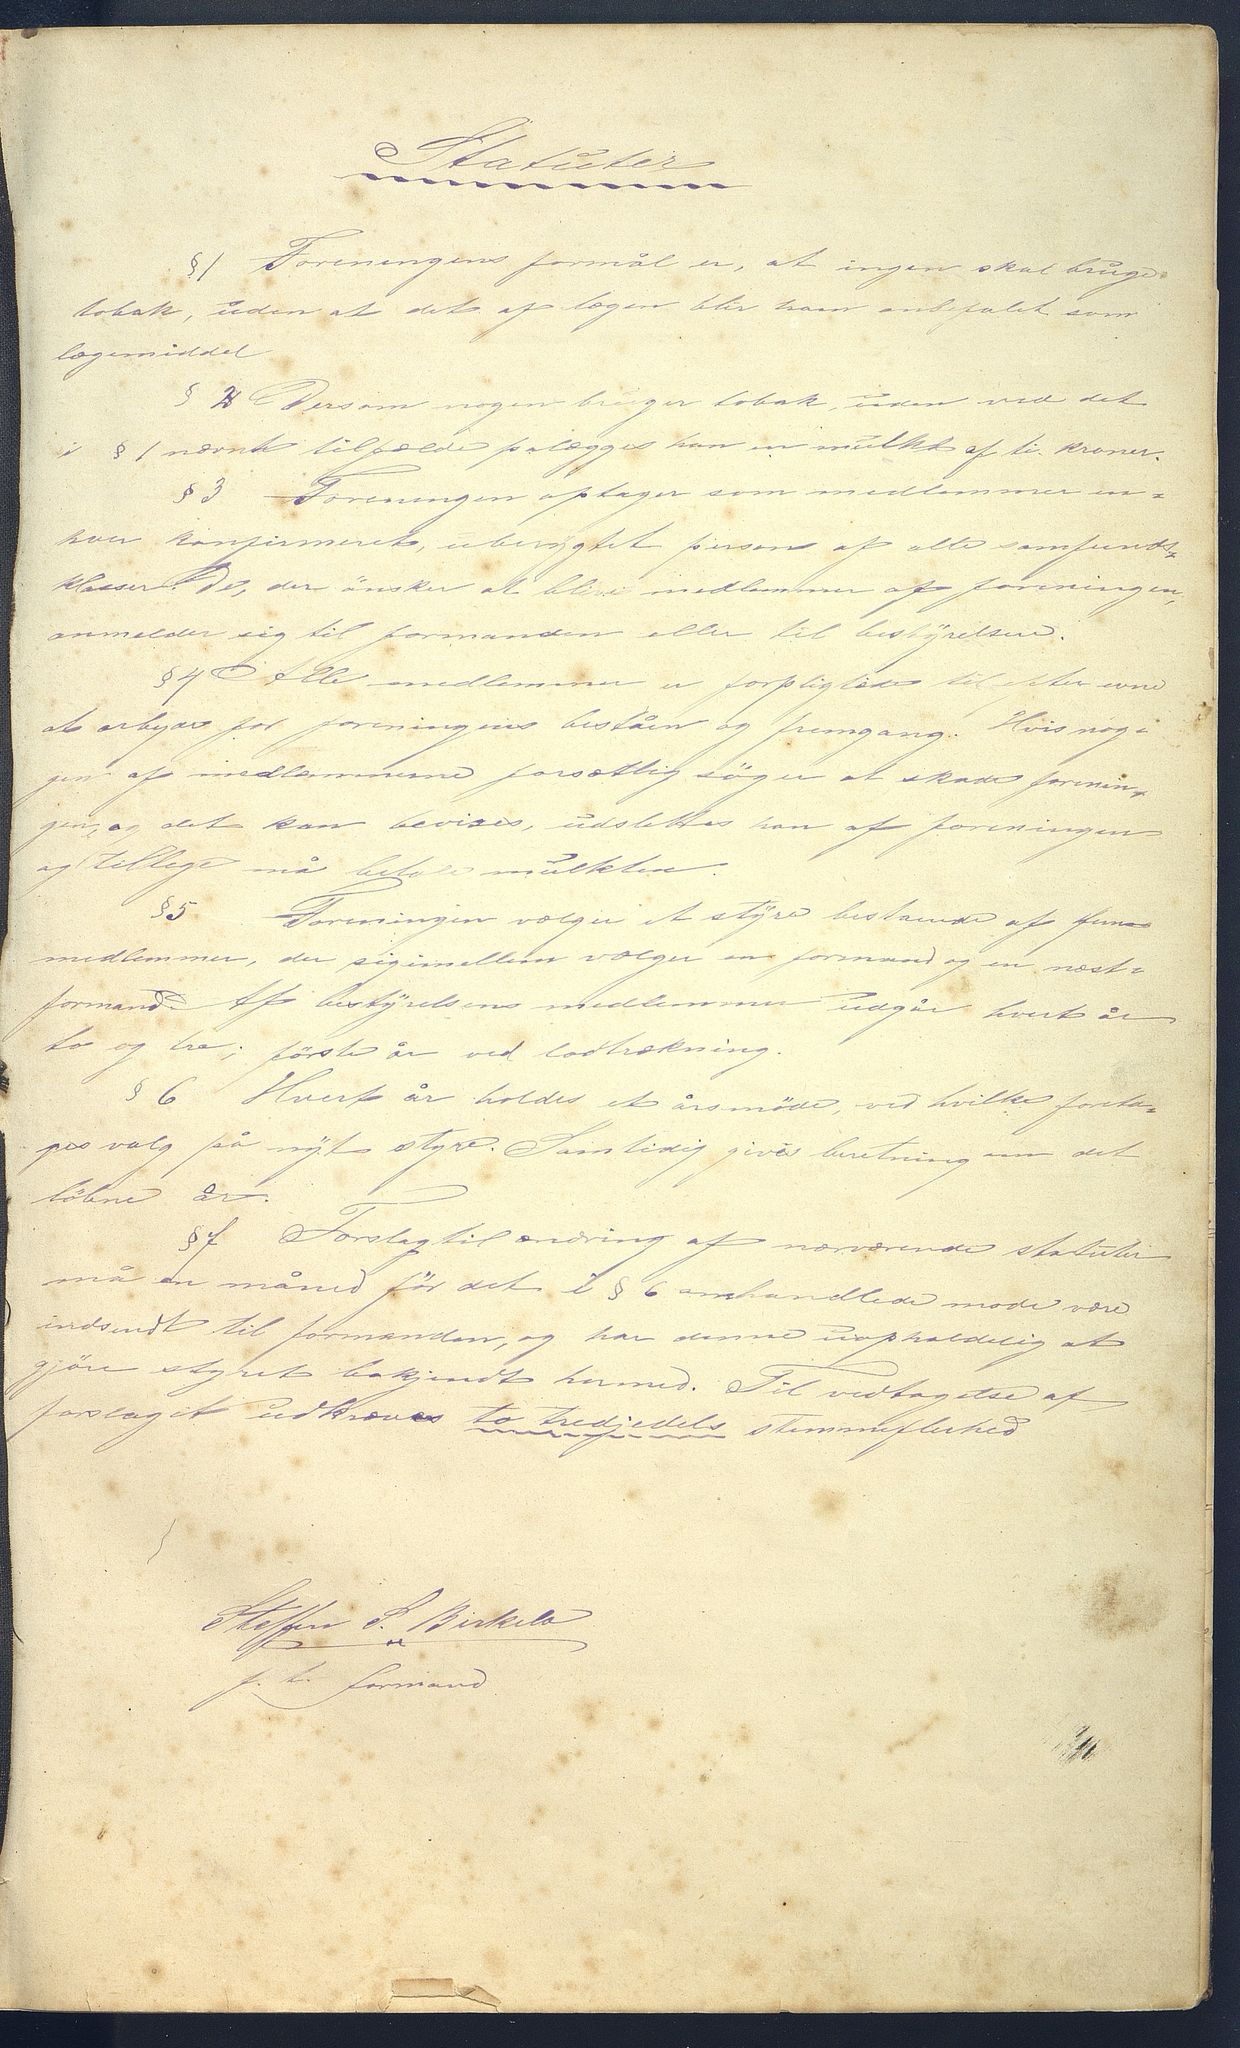 Statuter
§1 Foreningens formål er, at ingen skal bruge
tobak, uden at det af lægen blir ham anbefalet som
lægemiddel
§ 2 Dersom nogen bruger tobak, uden ved det
i § 1 nævnte tilfælde pålægges han en mulkt af ti kroner.
§ 3 Foreningen optager som medlemmer en-
hver konfirmeret, uberygtet person af alle samfunds-
klasser. De, der ønsker at blive medlemmer af foreningen,
anmelder sig til formanden eller til bestyrelsen.
§4 Alle medlemmer er forpligtede til efter evne
at arbejde for foreningens beståen og fremgang. Hvis nog-
gen af medlemmerne forsætlig söger at skade forenin-
gen, og det kan bevises, udslettes han af foreningen
og tillige må betale mulkten.
§5 Foreningen vælger et styre bestaaende af fem
medlemmer, der sigimellem vælger en formand og en næst-
formand. Af bestyrelsens medlemmer udgår hvert år
to og tre; første år ved lodtrækning.
§ 6 Hvert år holdes et årsmöde, ved hvilke foreta-
ges valg på nyt styre. Samtidig gives beretning om det
löbne år.
§ 7 Forslag til ændring af nærværende statuter
må en måned för det i § 6 omhandlede mode være
indsendt til formanden, og har denne uopholdelig at
gjöre styret bekjendt hermed. Til vedtagelse af
forslaget udkræves to tredjedels stemmeflerhed
Steffen S. Birkelo
p. t. formand